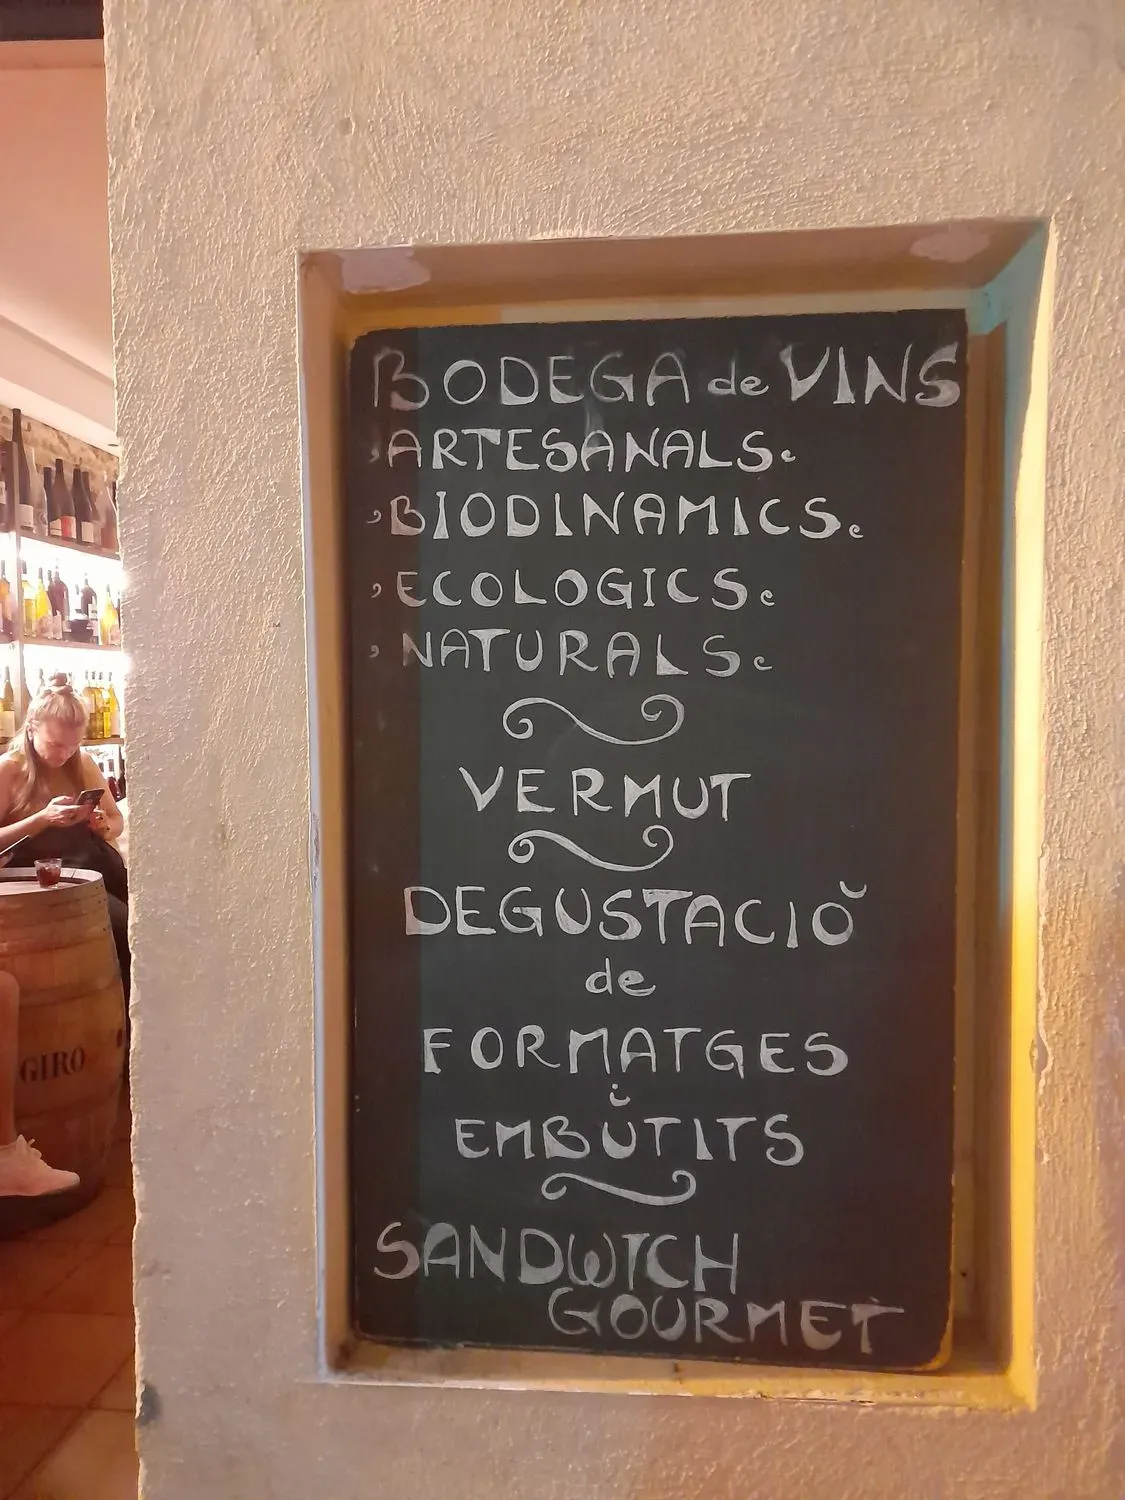 BODEGA de VINS
ARTESANALS
BIODINAMICS
ECOLOGICS
NATURALS
VERMUT
DEGUSTACIÓ
de
FORMATGES
i
EMBUTITS
SANDWICH
GOURMET
GIRÓ